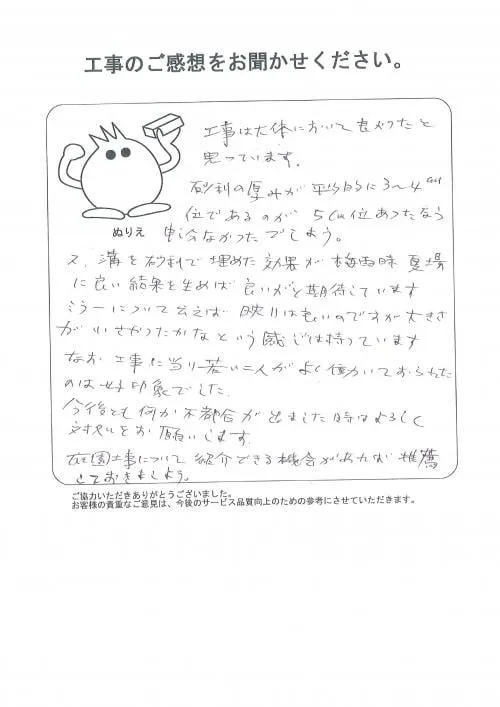 工事のご感想をお聞かせください。
工事は大体において良かったと
思っています。
砂利の厚みが平均的に3〜4cm
位であるのが5cm位あったなら
ぬりえ
申分なかったでしょう。
又、溝を砂利で埋めた効果が梅雨時 夏場
に良い結果を生めば良いがと期待しています
ミラーについて云えば 映りは良いのですが大きさ
が小さかったかなという感じは持っています
なお 工事に当り若い二人がよく働いておられた
のは好印象でした。
今後とも何か不都合が出ました時はよろしく
対処をお願いします。
庭園工事について紹介できる機会があれば 推薦
しておきましょう。
ご協力いただきありがとうございました。
お客様の貴重なご意見は、今後のサービス品質向上のための参考にさせていただきます。